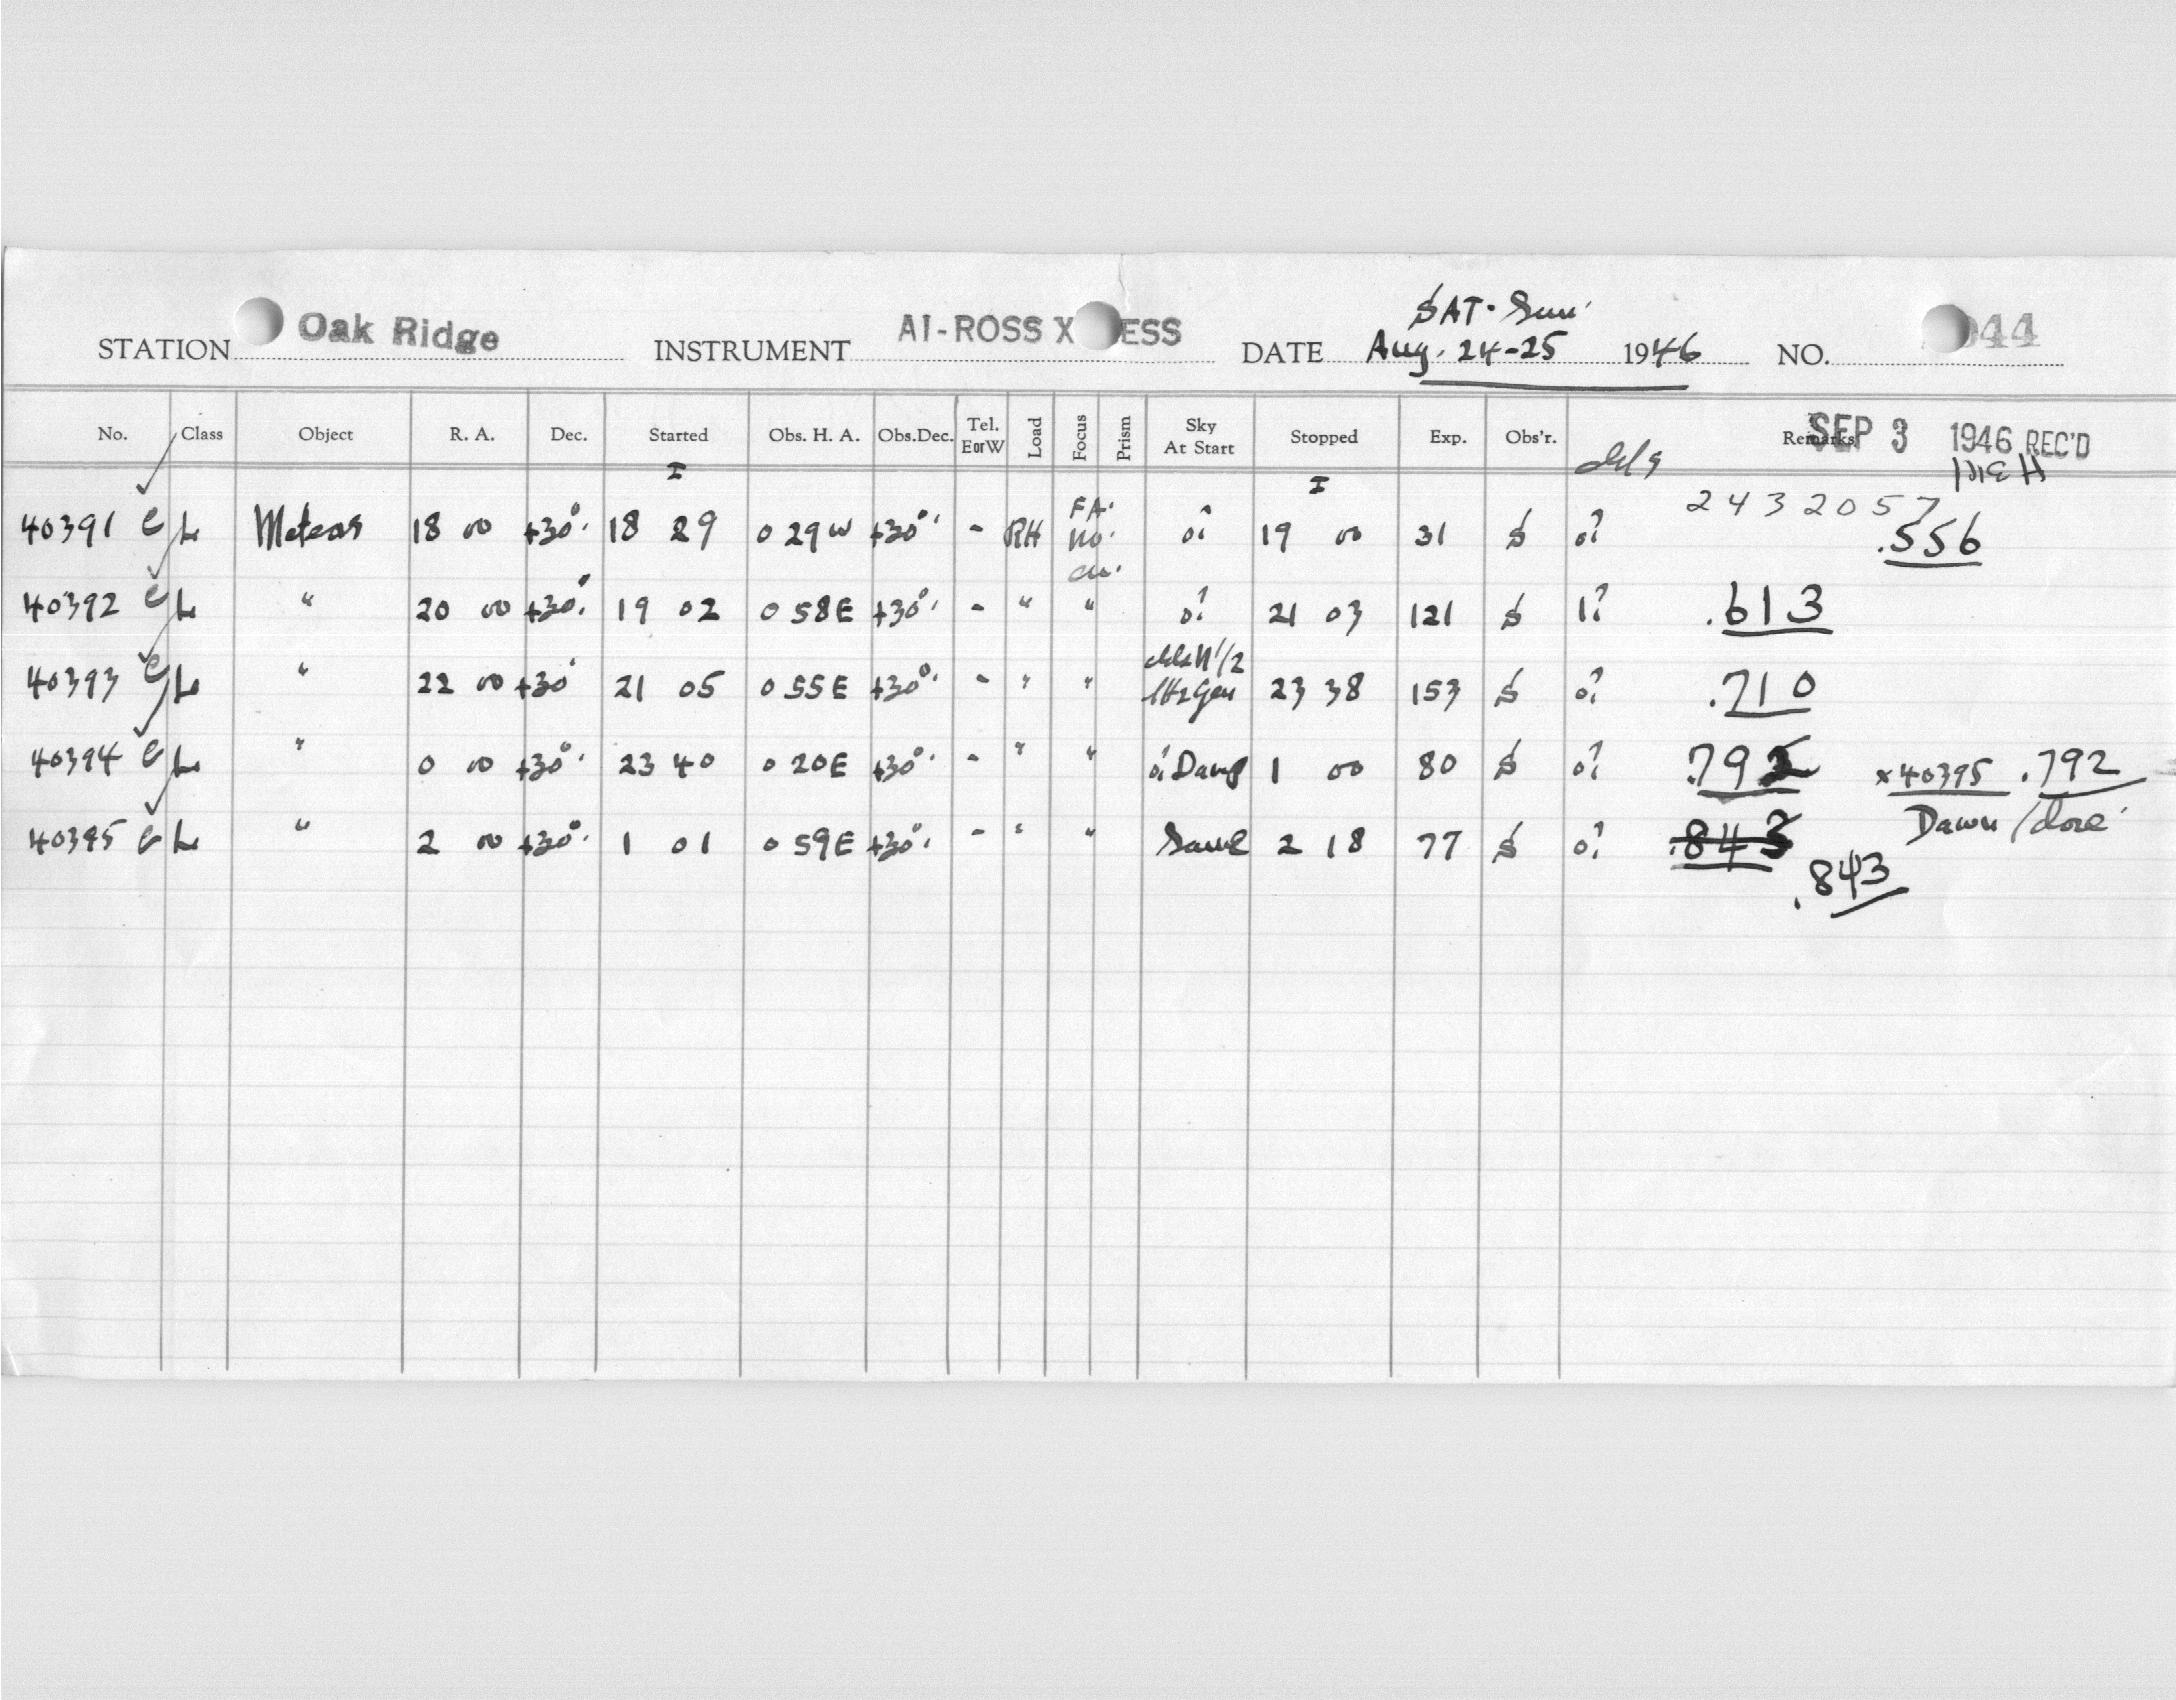 SAT. Sun.
STATION Oak Ridge INSTRUMENT AI-ROSS X ESS DATE Aug. 24-25 1946 NO. 044
No. Class Object R. A. Dec. Started Obs. H. A. Obs.Dec. Tel. E or W Load Focus Prism Sky At Start Stopped Exp. Obs'r. Remarks
SEP 3 1946 REC'D
I I
2432057
40391 e L Meteors 18 00 +30° 18 29 0 29 W +30° - RH FA. no. 0? 19 00 31 S 0? .556
40392 e L " 20 00 +30° 19 02 0 58 E +30° - " " 0? 21 03 121 S 1? .613
40393 e L " 22 00 +30 21 05 0 55 E +30° - " " 23 38 153 S 0? .710
40394 e L " 0 00 +30° 23 40 0 20 E +30° - " " 0? Damp 1 00 80 S 0? x40395 .792
40395 e L " 2 00 +30° 1 01 0 59 E +30° - " " Same 2 18 77 S 0? .843 Dawn / close
.843